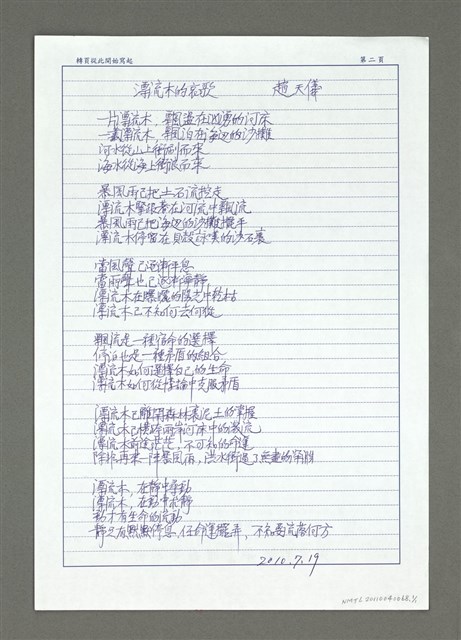 轉頁從此開始寫起
第二頁
漂流木的哀歌 趙天儀
一片漂流木，飄盪在洶湧的河床
一截漂流木，飄泊在海邊的沙灘
河水從山上衝刷而來
海水從海上衝浪而來
暴風雨已把土石流挖走
漂流木緊跟著在河流中飄流
暴風雨已把海邊的沙灘擺平
漂流木停留在貝殼詠嘆的沙石裏
當風聲已逐漸平息
當雨聲也已逐漸寧靜
漂流木在曝曬的陽光中乾枯
漂流木已不知何去何從
飄流是一種宿命的選擇
停泊也是一種矛盾的組合
漂流木如何選擇自己的生命
漂流木如何從悖論中克服矛盾
漂流木已離開森林裏泥土的掌握
漂流木已橫跨兩岸河床中的激流
漂流木前途茫茫，不可知的命運
除非再來一陣暴風雨，洪水衝過了無盡的
漂流木，在靜中尋動
漂流木，在動中求靜
動才有生命的流動
靜只有默默停息，任命運擺弄，不知要流落何方
2010.7.19